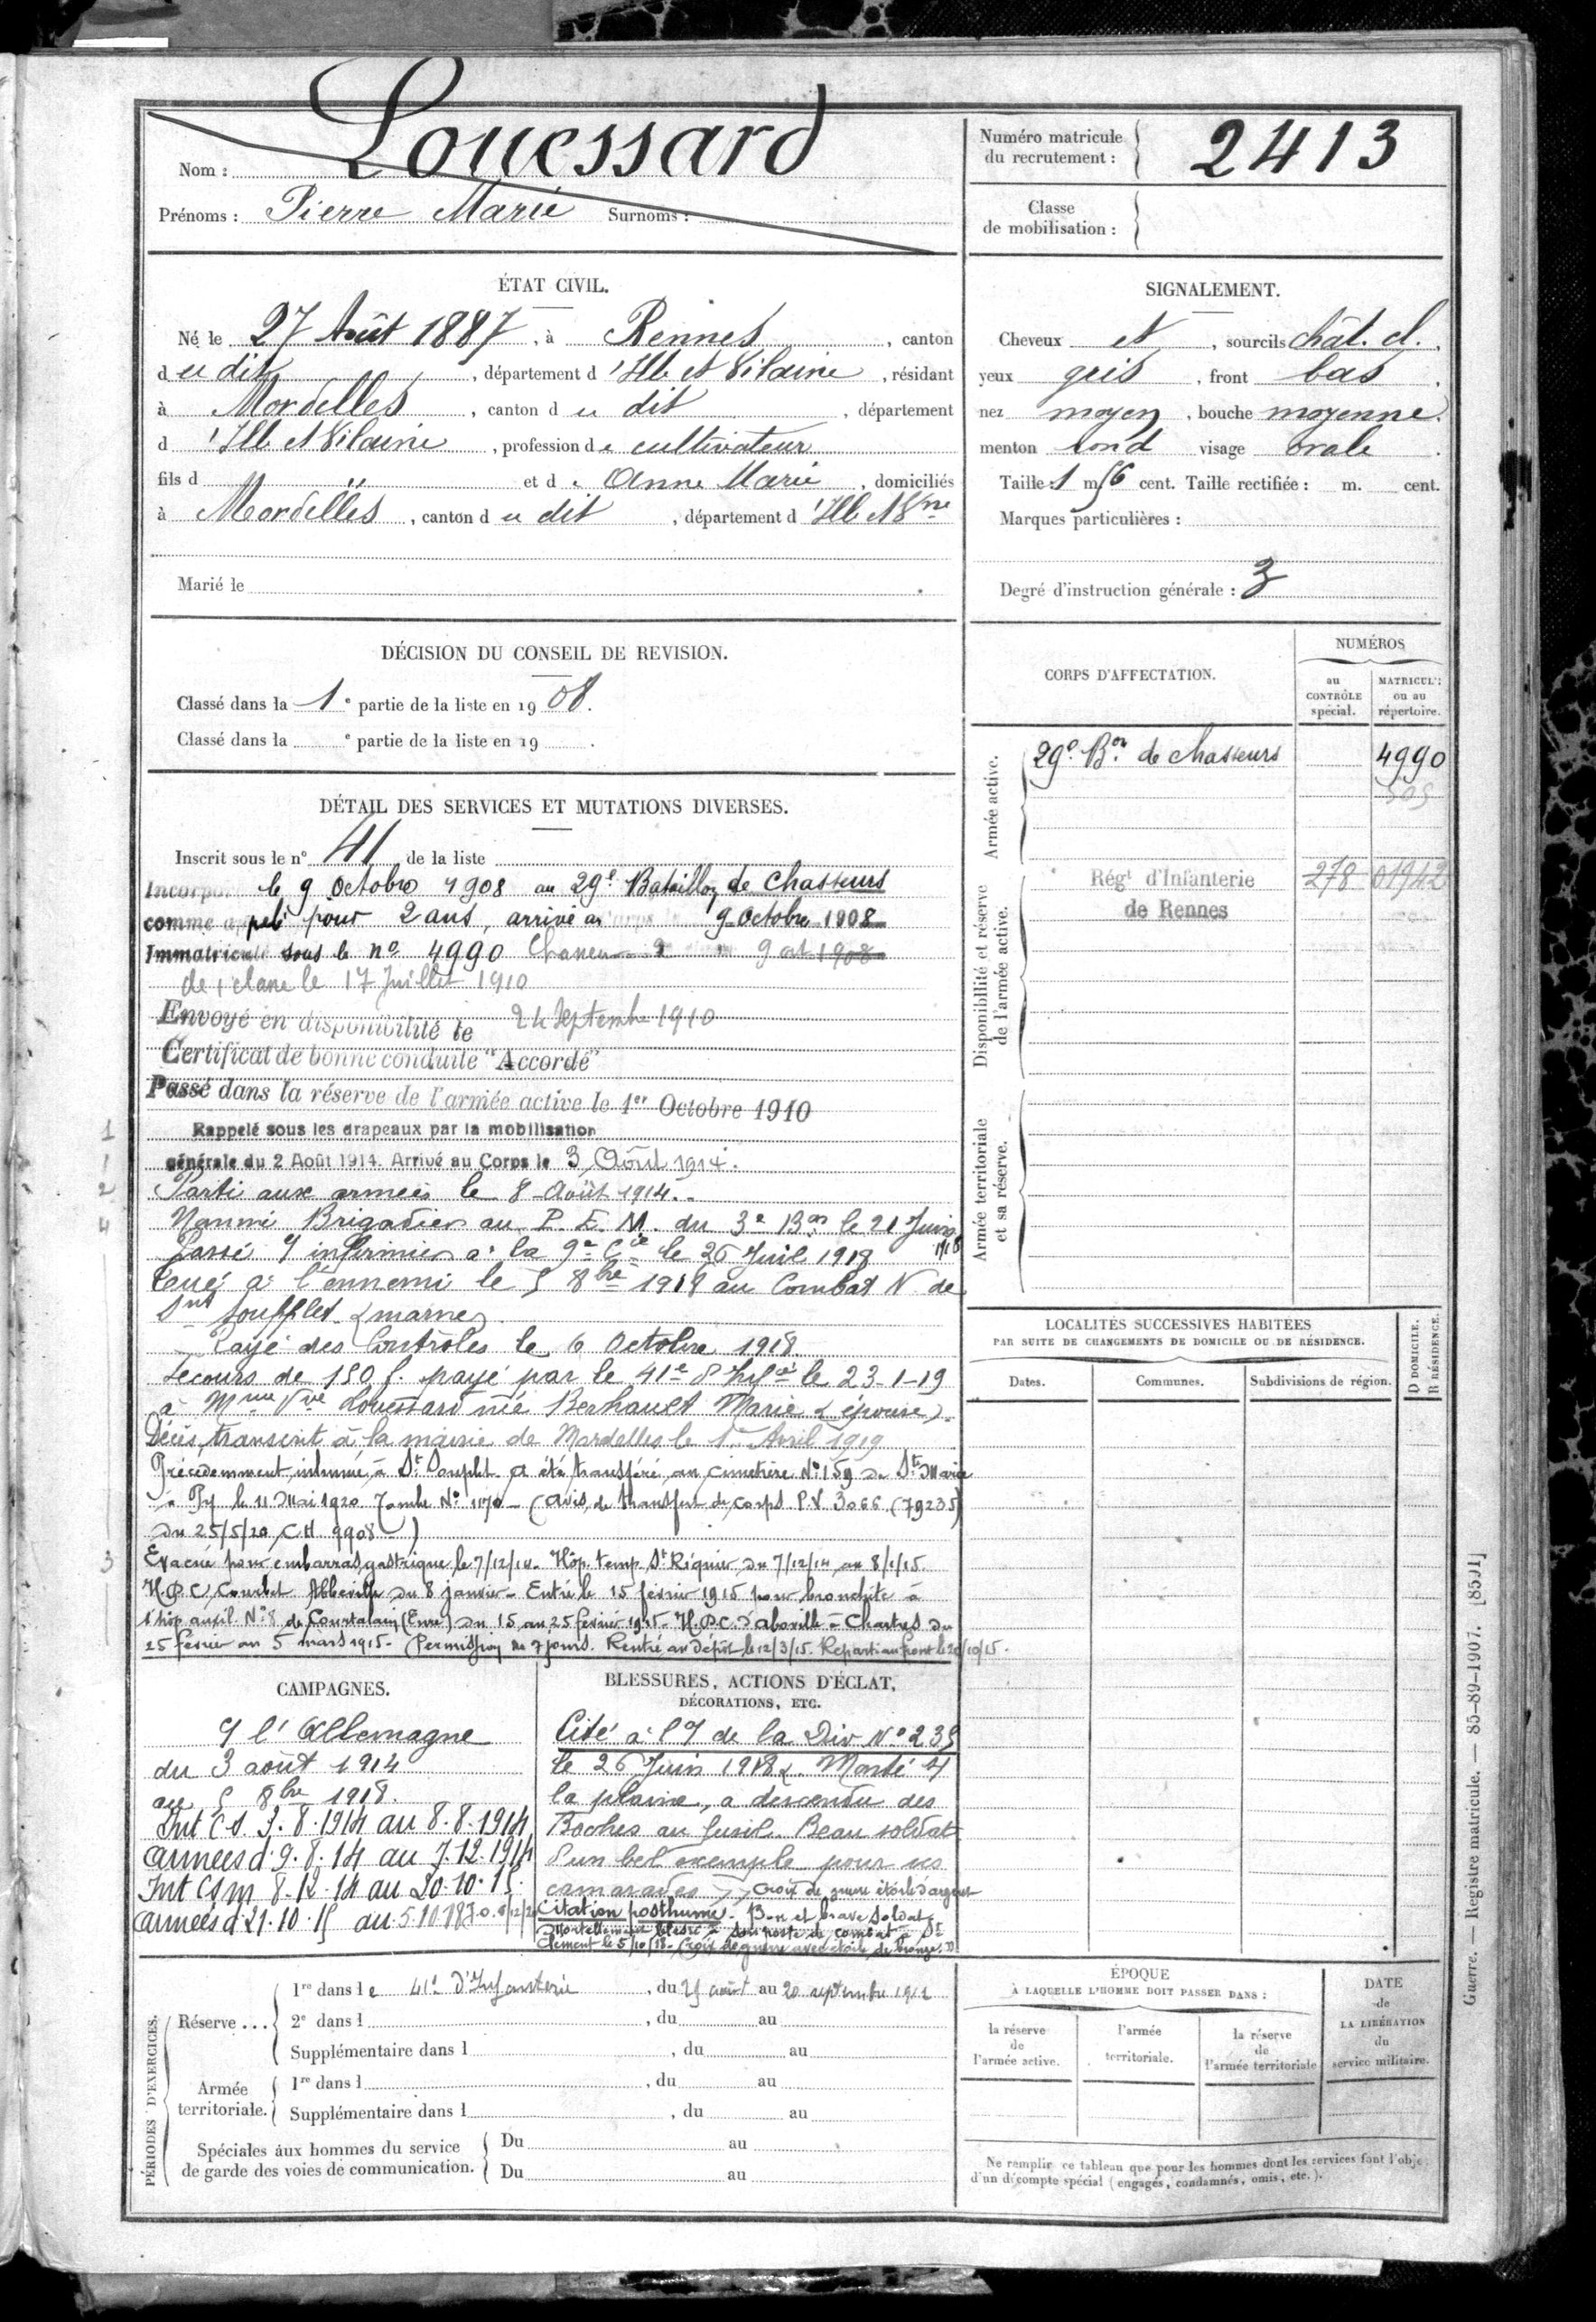 Nom : Louessard
Prénoms : Pierre Marie Surnoms :
Numéro matricule du recrutement : 2413
Classe de mobilisation :
ÉTAT CIVIL.
Né le 27 Août 1887, à Rennes, canton
du dit, département d'Ille et Vilaine, résidant
à Mordelles, canton du dit, département
d'Ille et Vilaine, profession de cultivateur
fils d et d. Anne Marie, domiciliés
à Mordelles, canton du dit, département d'Ille et Vne
Marié le
SIGNALEMENT.
Cheveux et, sourcils chât. cl.,
yeux gris, front bas,
nez moyen, bouche moyenne.
menton rond visage ovale.
Taille 1 m 56 cent. Taille rectifiée : m. cent.
Marques particulières :
Degré d'instruction générale : 3
DÉCISION DU CONSEIL DE REVISION.
Classé dans la 1e partie de la liste en 1908.
Classé dans la e partie de la liste en 19 .
CORPS D'AFFECTATION.
NUMÉROS
au CONTRÔLE spécial.
MATRICULE ou au répertoire.
Armée active.
29e Bon de chasseurs 4990
505
Disponibilité et réserve de l'armée active.
Régt d'Infanterie 278 01942
de Rennes
Armée territoriale et sa réserve.
DÉTAIL DES SERVICES ET MUTATIONS DIVERSES.
Inscrit sous le n° 41 de la liste
Incorporé le 9 Octobre 1908 au 29e Bataillon de Chasseurs
comme appelé pour 2 ans, arrivé au corps le 9 Octobre 1908
Immatriculé sous le n° 4990 Chasseur 9 oct 1908
de 1e classe le 17 Juillet 1910
Envoyé en disponibilité le 24 Septembre 1910
Certificat de bonne conduite "Accordé"
Passé dans la réserve de l'armée active le 1er Octobre 1910
Rappelé sous les drapeaux par la mobilisation
générale du 2 Août 1914. Arrivé au Corps le 3 Août 1914.
Parti aux armées le 8 Août 1914.
Nommé Brigadier au P. E. M. du 3e Bon le 21 Juin 1918
Passé infirmier à la 9e Cie le 26 Juil 1918
Tué à l'ennemi le 5 8bre 1918 au Combat N. de
Snt Soufflet (marne)
Rayé des Contrôles le 6 Octobre 1918
Secours de 150 f. payé par le 41e d'Infie le 23-1-19
à Mme Vve Louessard née Berhault Marie (épouse).
Décès transcrit à la mairie de Mordelles le 1er Avril 1919
Précédemment inhumé à St Souplet a été transféré au cimetière N° 159 de Ste Marie
à Py le 11 Mai 1920 Tombe N° 1170 - (avis de transfert de corps P.V. 3066 (79235)
du 25/5/20 CH 9908 - )
Evacué pour embarras gastrique le 7/12/14 - Hôp. temp. St Riquier du 7/12/14 au 8/1/15.
H.D.C. Courbet Abbeville du 8 janvier - Entré le 15 février 1915 pour bronchite à
l'hôp. auxil. N° 8 de Courtalain (Eure) du 15 au 25 février 1915 - H.D.C. d'aboville à Chartres du
25 février au 5 mars 1915 - (Permission de 7 jours. Rentré au dépôt le 12/3/15. Reparti au front le 20/10/15.
LOCALITÉS SUCCESSIVES HABITÉES
PAR SUITE DE CHANGEMENTS DE DOMICILE OU DE RÉSIDENCE.
Dates. Communes. Subdivisions de région.
D DOMICILE. R RÉSIDENCE.
CAMPAGNES.
l'Allemagne
du 3 août 1914
au 5 8bre 1918.
Int C.S. 3.8.1914 au 8.8.1914
armées d. 9.8.14 au 7.12.1914
Int CSM 8-12-14 au 20.10.15.
armées d 21.10.15 au 5.10.18
BLESSURES, ACTIONS D'ÉCLAT,
DÉCORATIONS, ETC.
Cité à l'O de la Div N° 235
le 26 Juin 1918. Monté
la plaine, a descendu des
Boches au fusil. Beau soldat
d'un bel exemple pour ses
camarades Croix de guerre étoile d'argent
Citation posthume. Bon et brave soldat
Mortellement blessé à son poste de combat à St
Clement le 5/10/18 - Croix de guerre avec étoile de bronze.
PÉRIODES D'EXERCICES.
Réserve ...
1re dans le 41e d'Infanterie, du 29 août au 20 septembre 1912
2e dans l , du au
Supplémentaire dans l , du au
Armée territoriale.
1re dans l , du au
Supplémentaire dans l , du au
Spéciales aux hommes du service
de garde des voies de communication.
Du au
Du au
ÉPOQUE
À LAQUELLE L'HOMME DOIT PASSER DANS :
la réserve de l'armée active.
l'armée territoriale.
la réserve de l'armée territoriale
DATE de LA LIBÉRATION du service militaire.
Ne remplir ce tableau que pour les hommes dont les services font l'obje
d'un décompte spécial (engagés, condamnés, omis, etc.).
Guerre. — Registre matricule. — 85-89-1907. [8531]
1
1
2
4
3